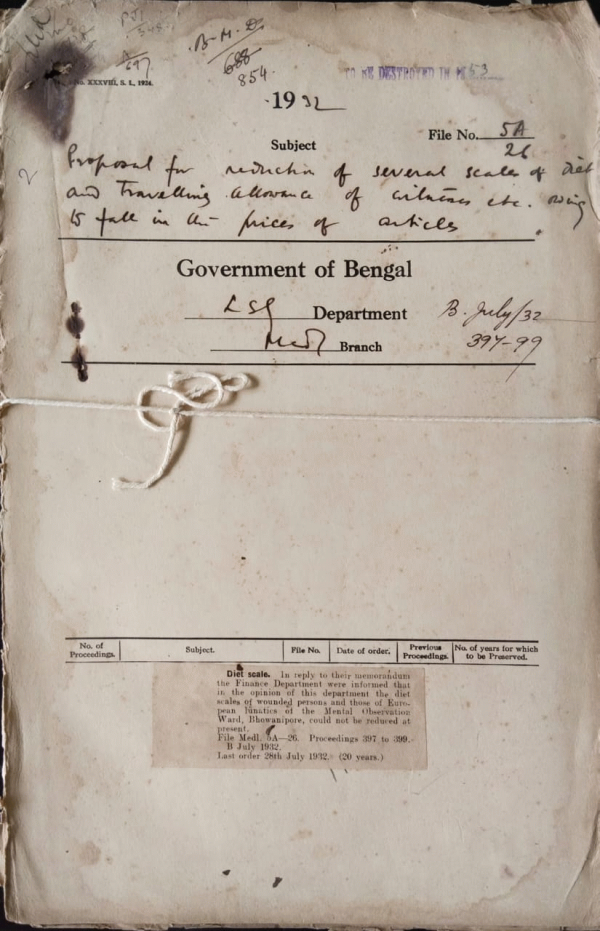 697
B. M. D.
688
854.
No. XXXVIII, S. I., 1924.
TO BE DESTROYED IN 1953
1932
File No. 5A
26
Subject
Proposal for reduction of several scales of diet
and travelling allowance of witness etc. owing
to fall in the prices of articles.
Government of Bengal
LSG Department
B. July/32
Medl Branch
397-99
No. of Proceedings. Subject. File No. Date of order. Previous Proceedings. No. of years for which to be Preserved.
Diet scale. In reply to their memorandum
the Finance Department were informed that
in the opinion of this department the diet
scales of wounded persons and those of Euro-
pean lunatics of the Mental Observation
Ward, Bhowanipore, could not be reduced at
present.
File Medl. 5A—26. Proceedings 397 to 399.
B July 1932.
Last order 28th July 1932. (20 years.)